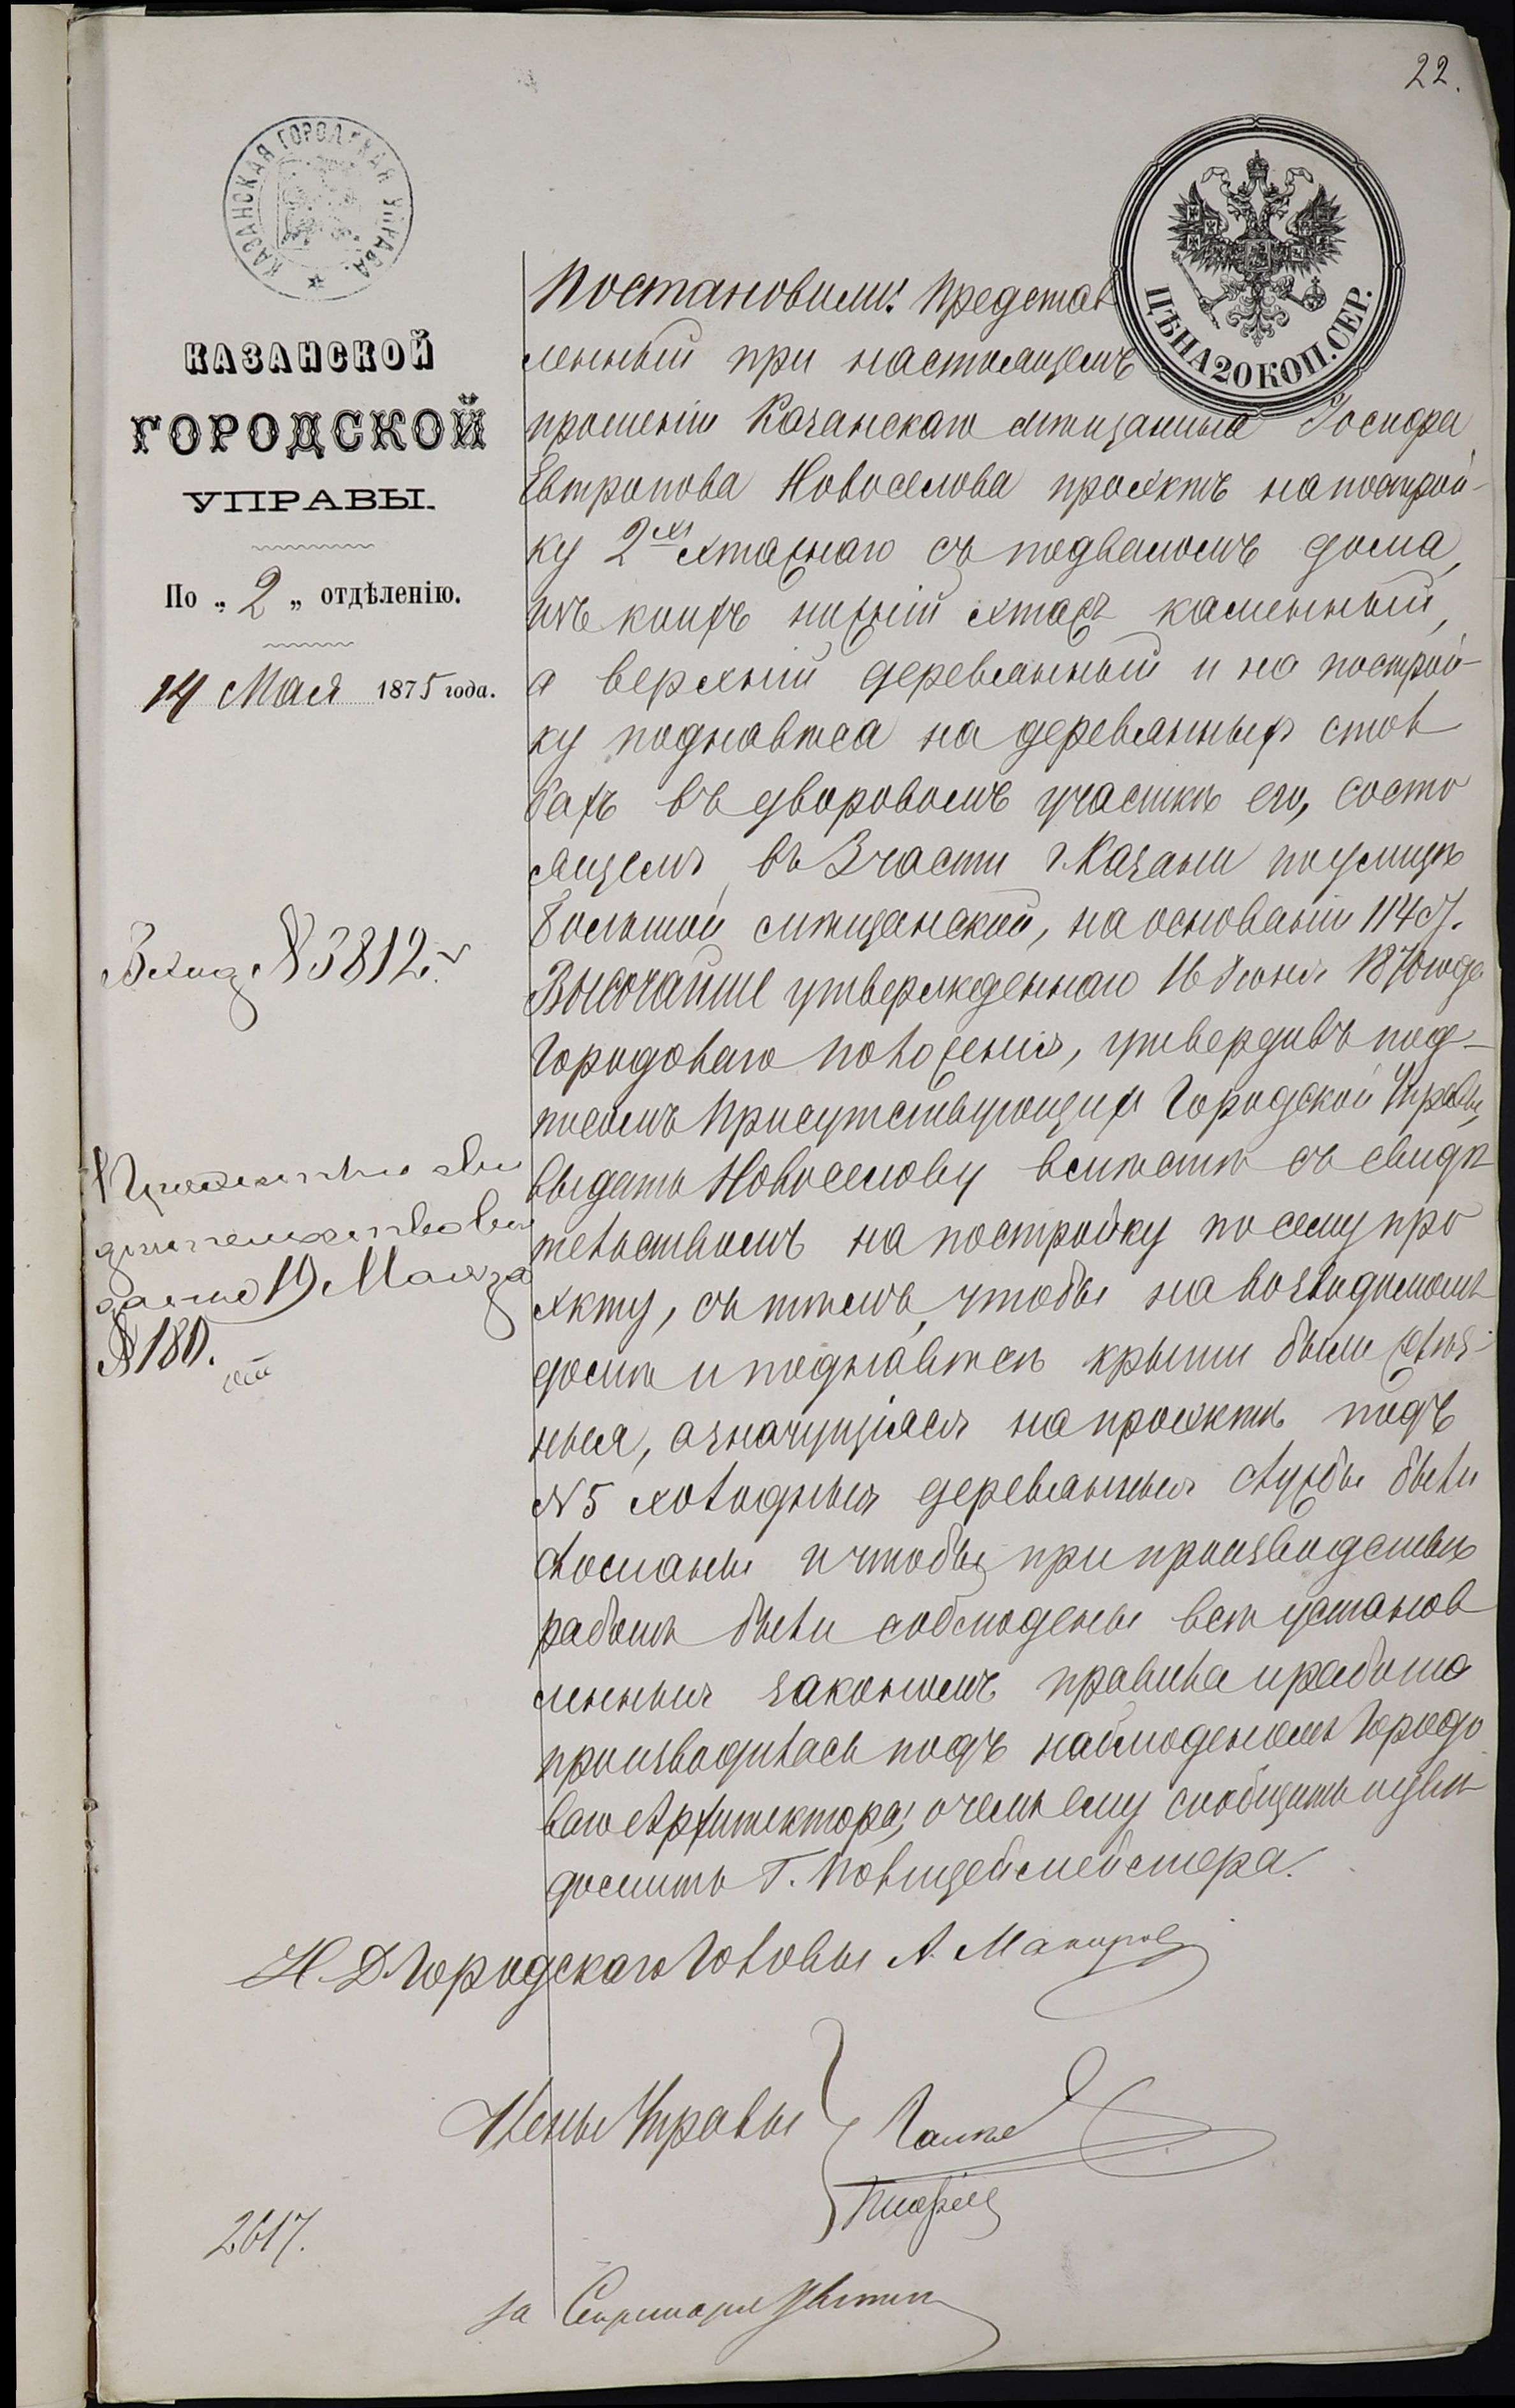 22.
КАЗАНСКАЯ ГОРОДСКАЯ УПРАВА.
ЦѢНА 20 КОП. СЕР.
КАЗАНСКОЙ
ГОРОДСКОЙ
УПРАВЫ.
По „ 2 „ отдѣленію.
14 Мая 1875 года.
Вход. № 3812.
Проектъ и сви
дѣтельство вы
даны 19 Мая за
№ 180.
Постановили: Представ
ленный при настоящемъ
прошеніи Казанскаго мѣщанина
Евтропова Новоселова проэктъ на построй-
ку 2хъ этажнаго съ подваломъ дома,
изъ коихъ нижній этажъ каменный,
а верхній деревянный и на построй-
ку поднавѣса на деревянныхъ стол
бахъ въ дворовомъ участкѣ его, состо
ящемъ въ 3 части г. Казани по улицѣ
Большой мѣщанской, на основаніи 114 ст.
Высочайше утвержденнаго 16 Іюня 1870 года
Городоваго положенія, утвердивъ под-
писомъ Присутствующихъ Городской Управы,
выдать Новоселову вмѣстѣ съ свидѣ
тельствомъ на постройку по сему про
экту, съ тѣмъ, чтобы на возводимомъ
домѣ и поднавѣсѣ крыши были желѣз-
ныя, означущіяся на проэктѣ подъ
№ 5 холодныя деревянныя службы были
сломаны и чтобы при производствѣ
работъ были соблюдены всѣ установ
ленныя закономъ правила и работа
производилась подъ наблюденіемъ Городо
ваго Архитектора, о чемъ ему сообщить и увѣ
домить Г. Полицеймейстера.
И. Д. Городскаго Головы А.
Члены Управы
2617.
за Секретаря